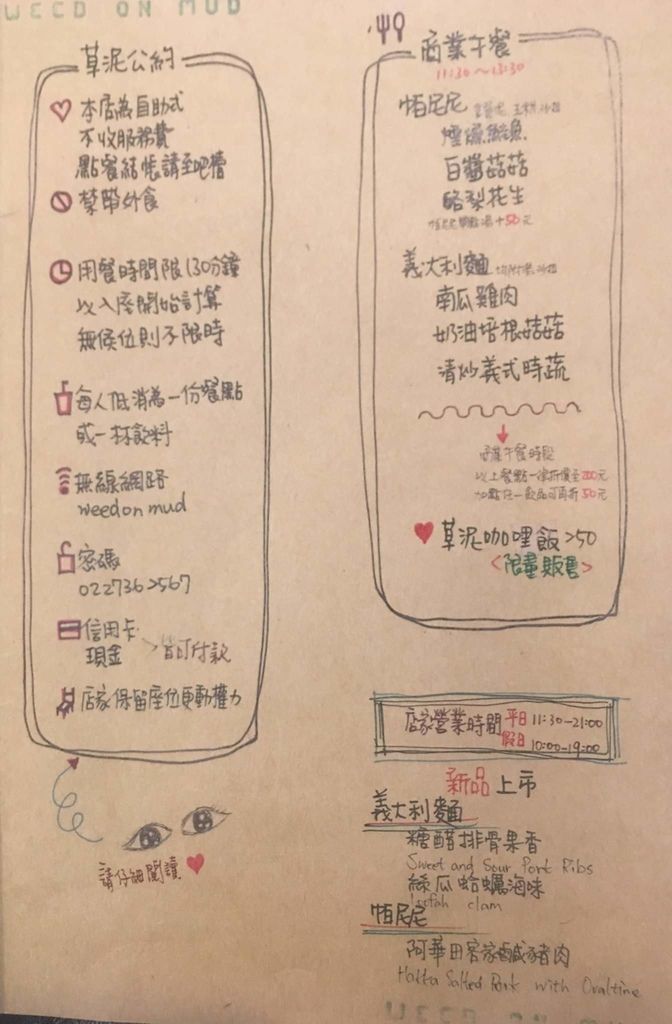 WEED ON MUD
草泥公約
本店為自助式
不收服務費
點餐結帳請至吧檯
禁帶外食
用餐時間限130分鐘
以入座開始計算
無候位則不限時
每人低消為一份餐點
或一杯飲料
無線網路
weedonmud
密碼
0227362567
信用卡
現金 >皆可付款
店家保留座位更動權力
請仔細閱讀
商業午餐
11:30~13:30
帕尼尼
煙燻鮭魚
白醬菇菇
酪梨花生
+50元
義大利麵
南瓜雞肉
奶油培根菇菇
清炒義式時蔬
商業午餐時段
以上餐點一律折價至200元
加點任一飲品可再折50元
草泥咖哩飯250
<限量販售>
店家營業時間 平日 11:30-21:00
假日 10:00-19:00
新品上市
義大利麵
糖醋排骨果香
Sweet and Sour Pork Ribs
絲瓜蛤蠣海味
Loofah clam
帕尼尼
阿華田客家鹹豬肉
Hakka Salted Pork with Ovaltine